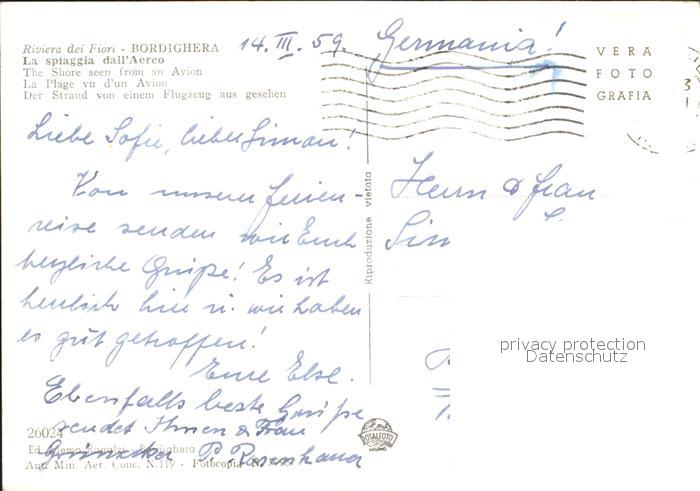 Riviera dei Fiori - BORDIGHERA
La spiaggia dall'Aereo
The Shore seen from an Avion
La Plage vu d'un Avion
Der Strand von einem Flugzeug aus gesehen
14. III. 59.
Germania!
VERA
FOTO
GRAFIA
Liebe Sofie, lieber Simon!
Von unserer Ferien-
reise senden wir Euch
herzliche Grüße! Es ist
herrlich hier u. wir haben
es gut getroffen!
Eure Else.
Ebenfalls beste Grüße
sendet Ihnen & Frau
P. Rosenhauer
Riproduzione vietata
Herrn & Frau
Sim
privacy protection
Datenschutz
26024
Bordighera
Aut. Min. Aer. Conc. N. 119 - Fotocopia